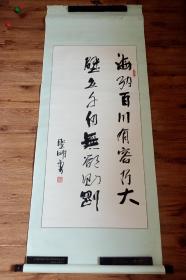 海纳百川有容乃大
壁立千仞無欲则刚